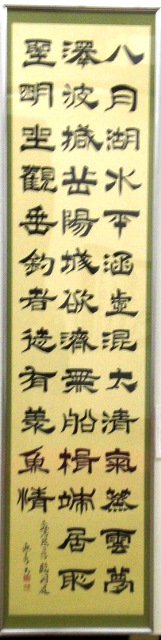 八月湖水平涵虛混太清氣蒸雲夢
澤波撼岳陽城欲濟無船楫端居恥
聖明坐觀垂釣者徒有羨魚情